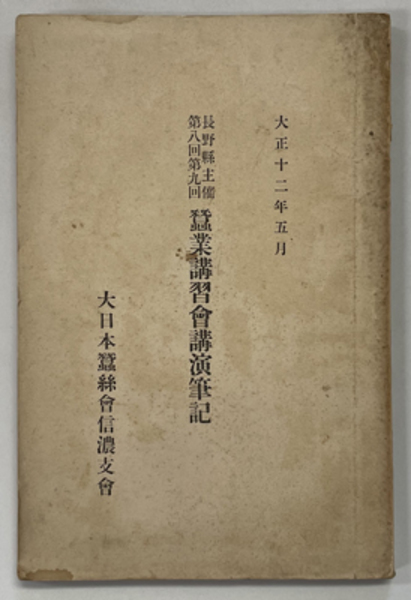 大正十二年五月
長野縣主催
第八回第九回
蠶業講習會講演筆記
大日本蠶絲會信濃支會